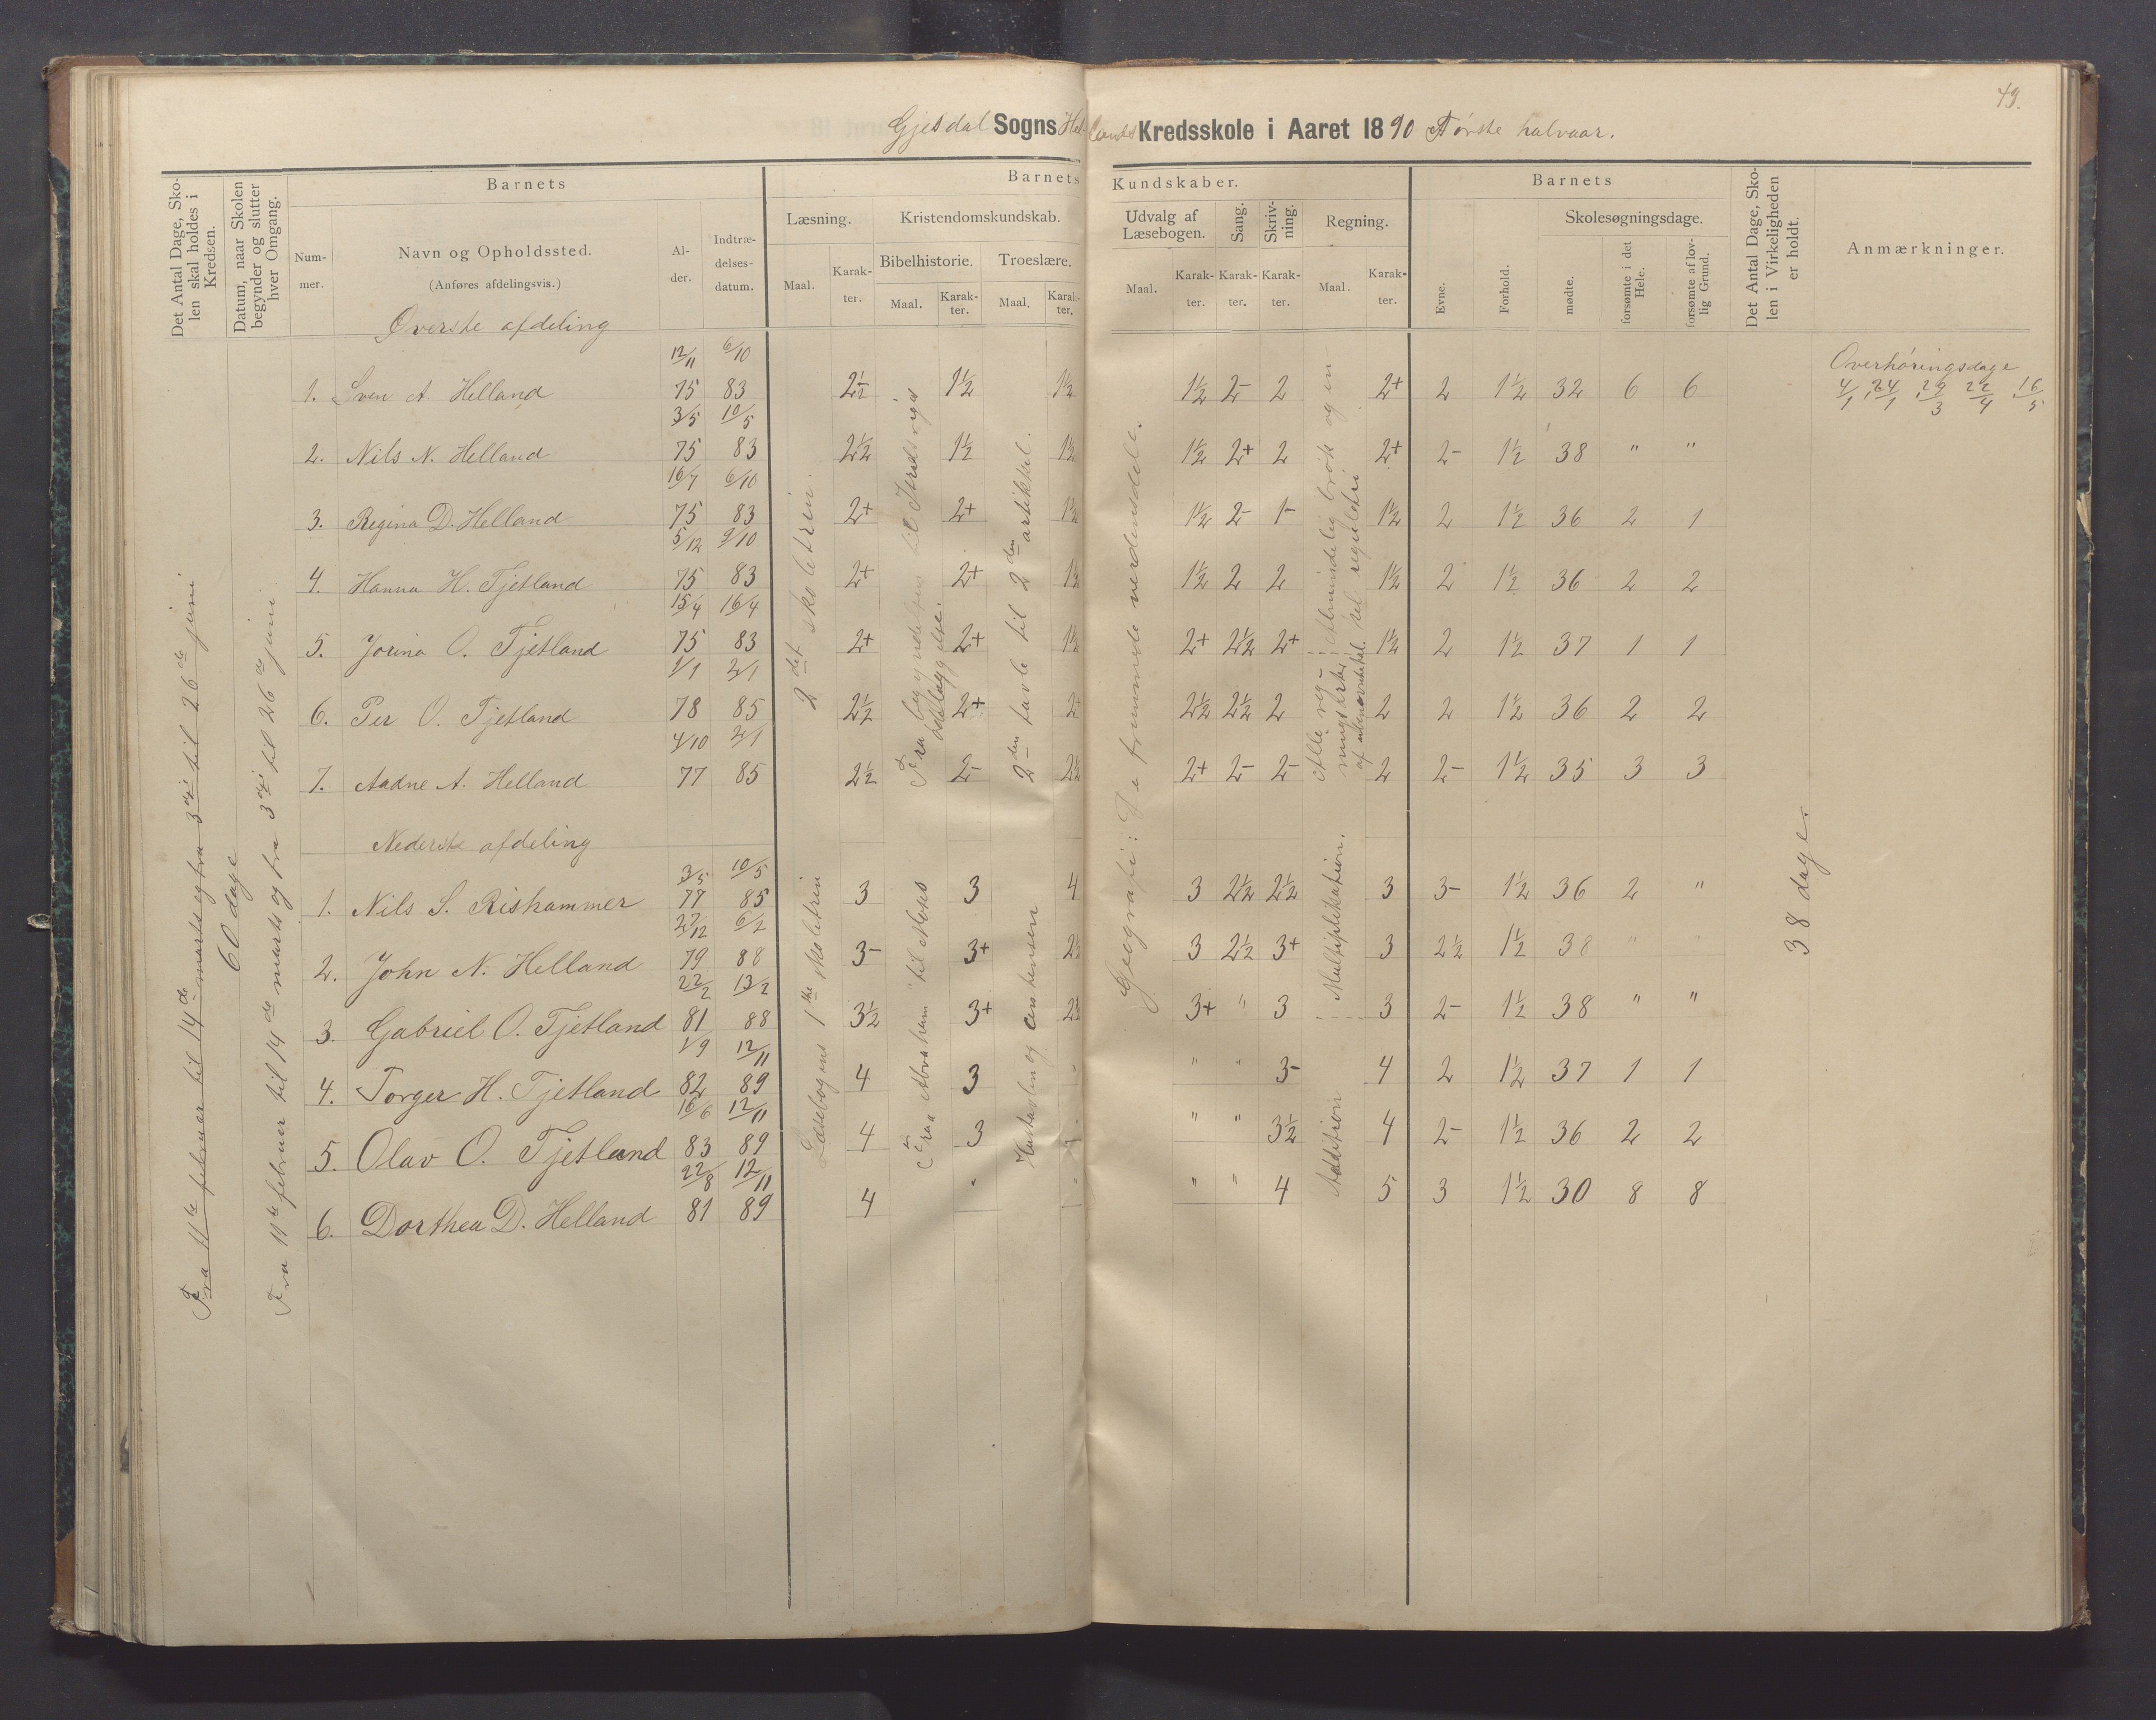 49.
Gjesdal Sogns Hellands Kredsskole i Aaret 1890 Første halvaar.
Det Antal Dage, Skolen skal holdes i Kredsen.
Datum, naar Skolen begynder og slutter hver Omgang.
Barnets
Nummer.
Navn og Opholdssted.
(Anføres afdelingsvis.)
Alder.
Indtrædelsesdatum.
Barnets Kundskaber.
Læsning.
Maal.
Karakter.
Kristendomskundskab.
Bibelhistorie.
Maal.
Karakter.
Troeslære.
Maal.
Karakter.
Udvalg af Læsebogen.
Maal.
Karakter.
Sang.
Karakter.
Skrivning.
Karakter.
Regning.
Maal.
Karakter.
Barnets
Evne.
Forhold.
Skolesøgningsdage.
mødte.
forsømte i det Hele.
forsømte af lovlig Grund.
Det Antal Dage, Skolen i Virkeligheden er holdt.
Anmærkninger.
Øverste afdeling
12/11 6/10
1. Sven A. Helland 75 83 2½ 1½ 1½ 1½ 2- 2 2+ 2 1½ 32 6 6
3/5 10/5
2. Nils N. Helland 75 83 2½ 1½ 1½ 1½ 2+ 2 2+ 2- 1½ 38 " "
16/7 6/10
3. Regina D. Helland 75 83 2+ 2+ 1½ 1½ 2- 1- 1½ 2 1½ 36 2 1
5/12 9/10
4. Hanna H. Tjetland 75 83 2+ 2+ 1½ 1½ 2 2 1½ 2 1½ 36 2 2
15/4 16/4
5. Jorina O. Tjetland 75 83 2+ 2+ 1½ 2+ 2½ 2+ 1½ 2 1½ 37 1 1
1/1 2/1
6. Per O. Tjetland 78 85 2½ 2+ 2+ 2½ 2½ 2 2 2 1½ 36 2 2
4/10 2/1
7. Aadne A. Helland 77 85 2½ 2- 2½ 2+ 2- 2- 2 2- 1½ 35 3 3
Nederste afdeling
3/5 10/5
1. Nils S. Rishammer 77 85 3 3 4 3 2½ 2½ 3 3- 1½ 36 2 "
27/12 6/2
2. John N. Helland 79 88 3- 3+ 2½ 3 2½ 3+ 3 2½ 1½ 38 " "
22/2 13/2
3. Gabriel O. Tjetland 81 88 3½ 3+ 2½ 3+ " 3 3 2- 1½ 38 " "
1/9 12/11
4. Torger H. Tjetland 82 89 4 3 " " " 3- 4 2 1½ 37 1 1
16/6 12/11
5. Olav O. Tjetland 83 89 4 3 " " " 3½ 4 2- 1½ 36 2 2
22/8 12/11
6. Dorthea D. Helland 81 89 4 " " " " 4 5 3 1½ 30 8 8
Fra 11te februar til 14de marts og fra 3die til 26de juni
60 dage
Fra 11te februar til 14de marts og fra 3die til 26de juni
2det skoletrin.
Læsebogens 1ste skoletrin
Fra begyndelsen til Israels riges
ødelæggelse.
Fra "Abraham" til Moses
2den tavle til 2den artikkel.
Hustavlen og
Geografi: De fremmede verdensdele.
Alle reg-
i almindelig brøk og en
ningsarter
af ubenævnte tal.
del reguladetri
Multiplikation.
Addition
38 dage.
Overhøringsdage
4/1, 24/1, 29/3 22/4, 16/5